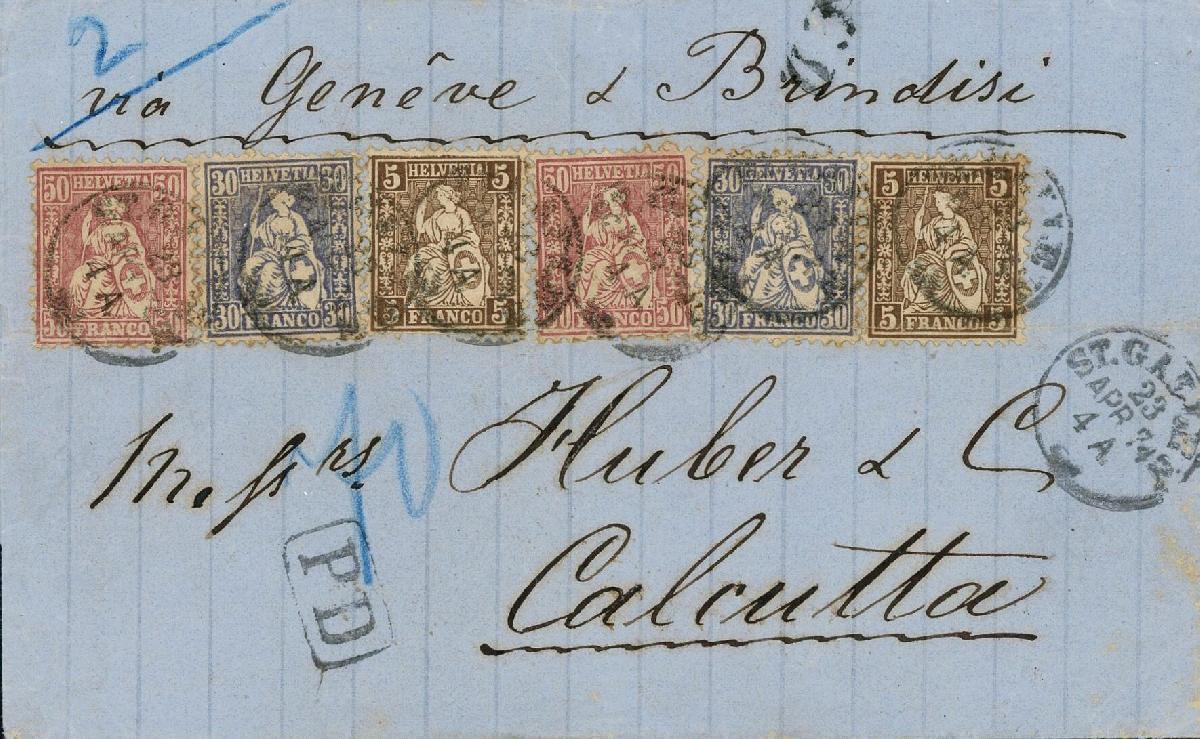 2
via Genêve & Brindisi
50 HELVETIA 50
FRANCO
30 HELVETIA 30
30 FRANCO 30
5 HELVETIA 5
5 FRANCO 5
50 HELVETIA 50
50 FRANCO 50
30 HELVETIA 30
30 FRANCO 30
5 HELVETIA 5
5 FRANCO 5
ST. GALLEN
23
APR. 74
4 A
Messrs. Huber & C
10
PD
Calcutta